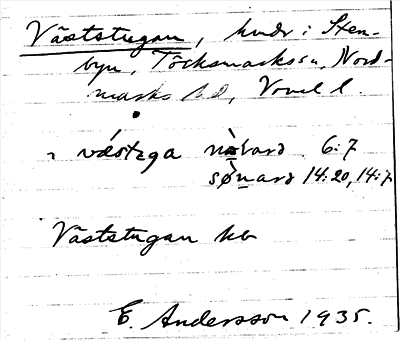 Väststugan, hmdr i Sten-
byn, Töcksmarks sn, Nord-
marks hd, Vrml l.
væstega 6:7
14:20, 14:7
Väststugan kb
E. Andersson 1935.